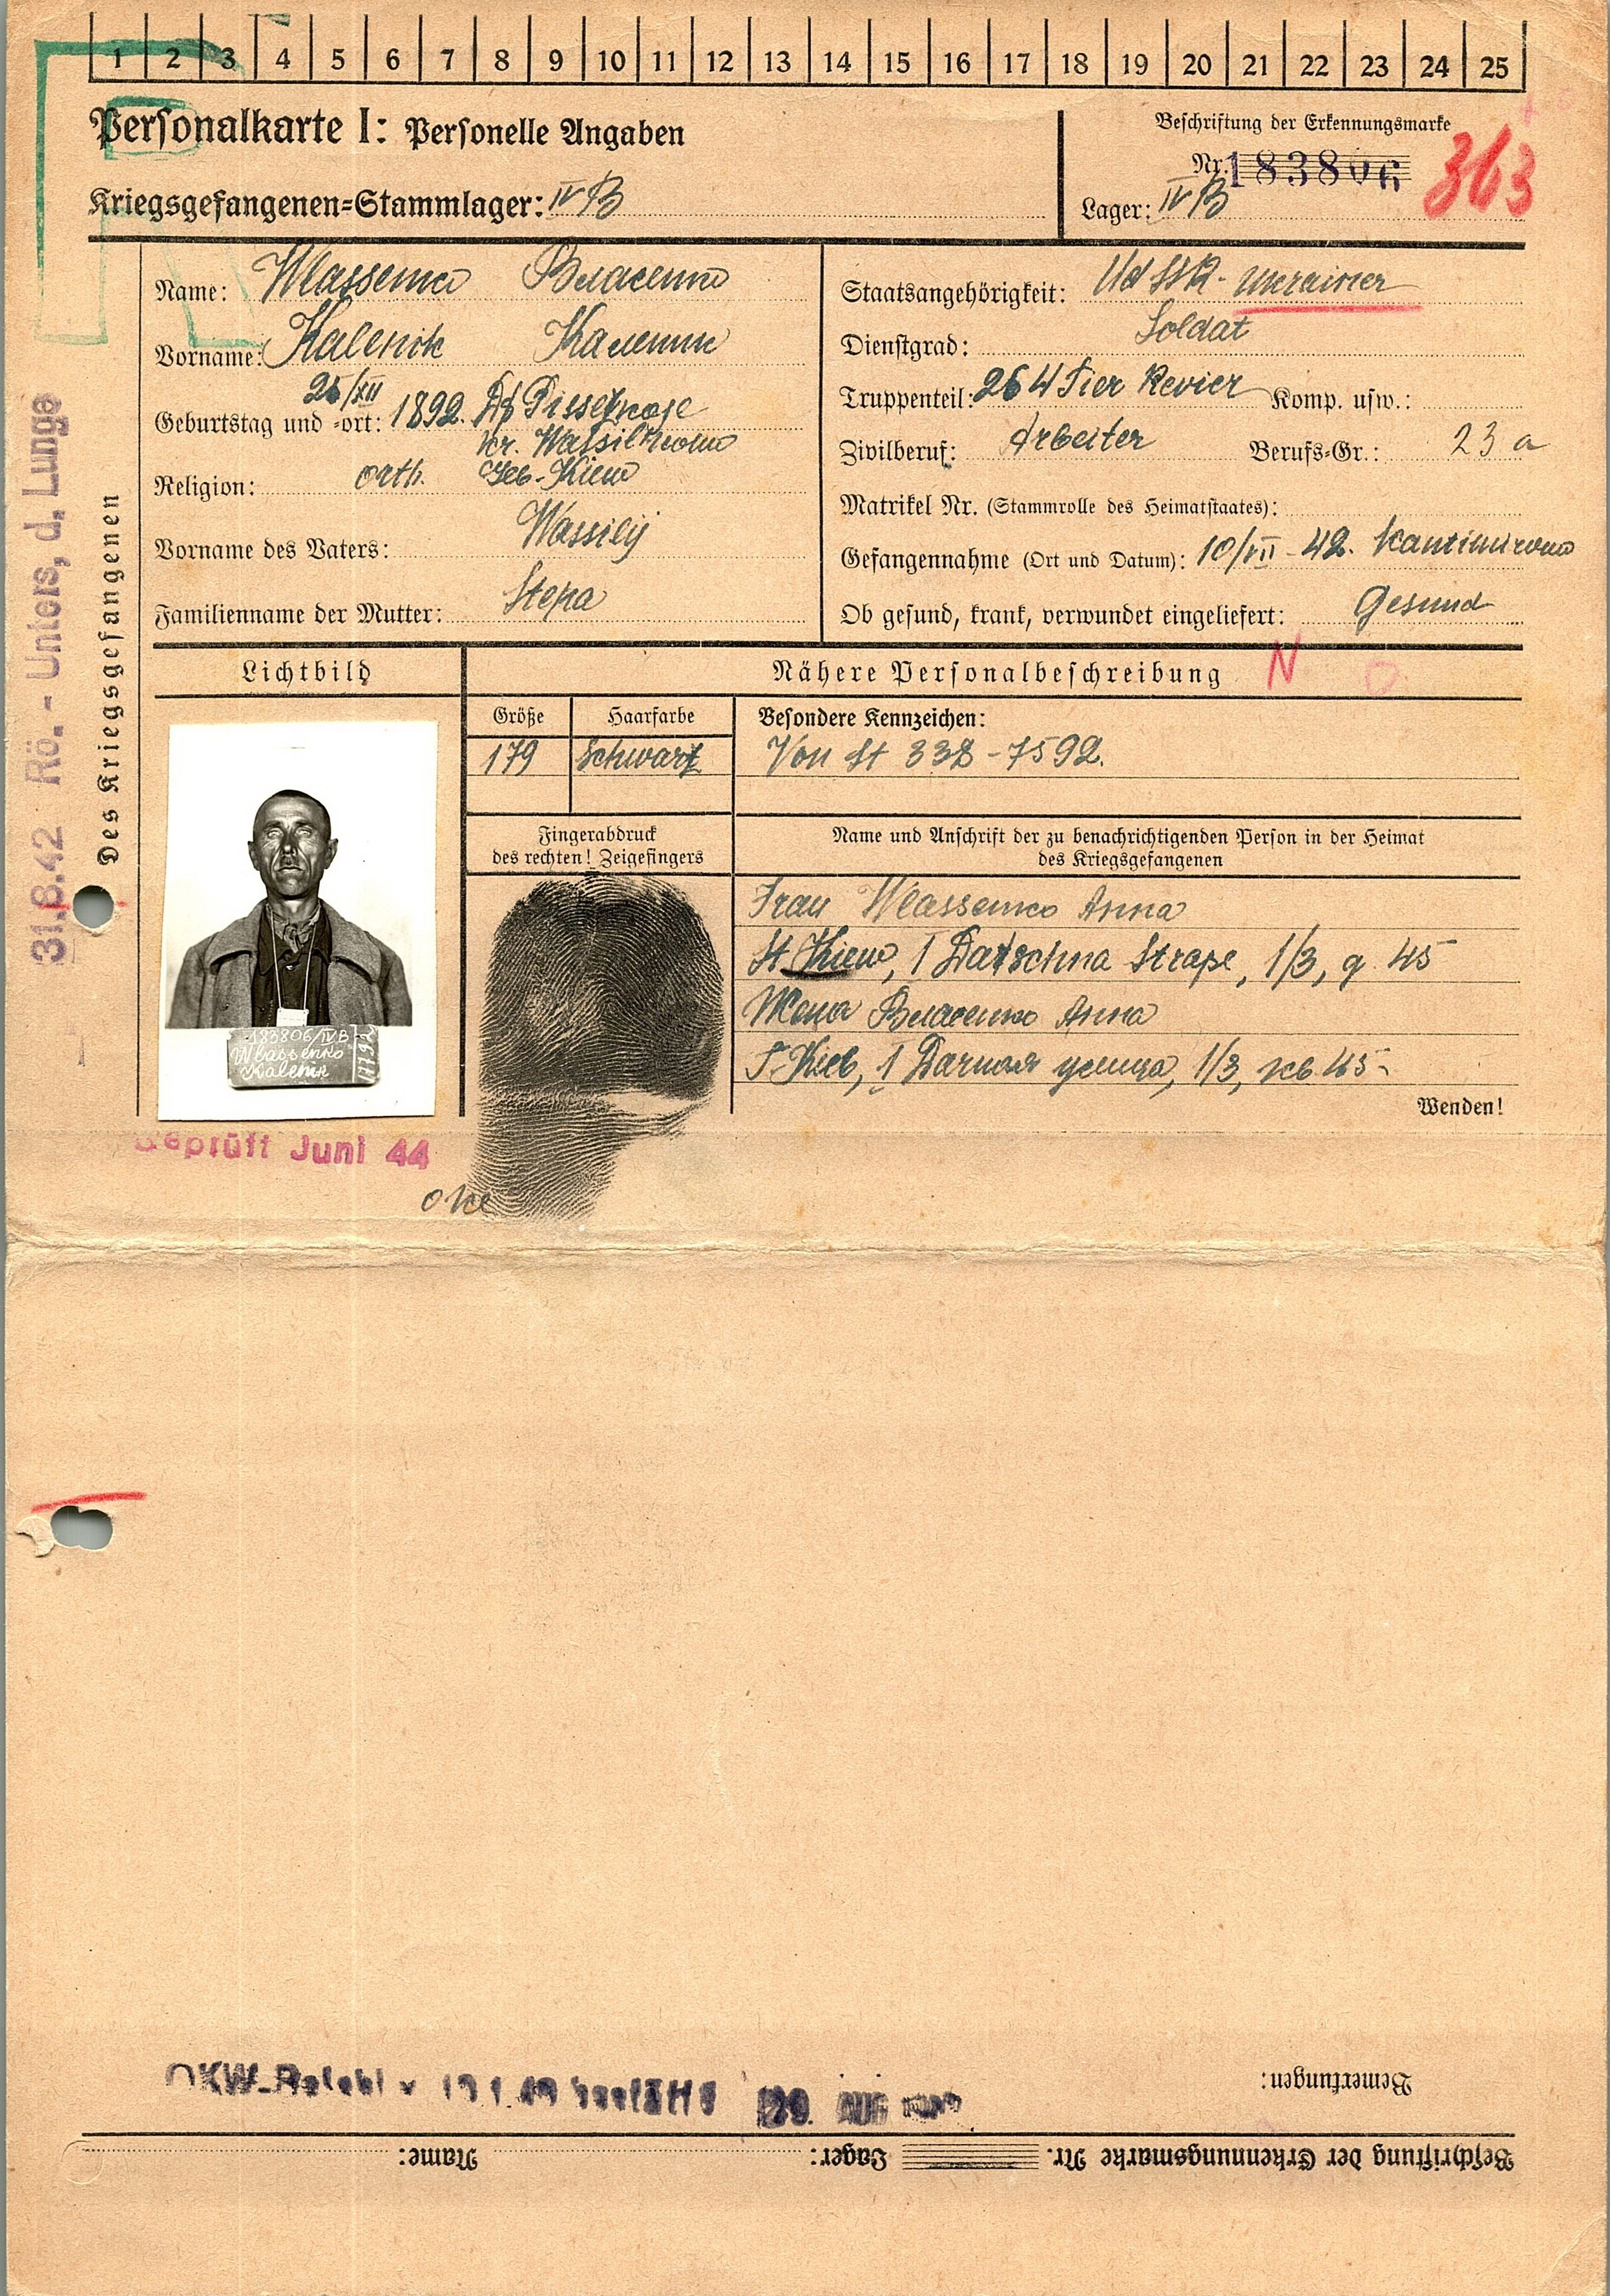 1 2 3 4 5 6 7 8 9 10 11 12 13 14 15 16 17 18 19 20 21 22 23 24 25
Personalkarte I: Personelle Angaben
Kriegsgefangenen=Stammlager: IV B
Beschriftung der Erkennungsmarke
Nr. 183806
363
Lager: IV B
31.8.42 Rö. - Unters. d. Lunge
Des Kriegsgefangenen
Name: Wlassenko Власенко
Vorname: Kalenik Каленик
25/XII
Geburtstag und =ort: 1892. Df
kr. Wassilkowo
Religion: orth. Geb-Kiew
Vorname des Vaters: Wassilij
Familienname der Mutter: Stepa
Staatsangehörigkeit: UdSSR - Ukrainer
Dienstgrad: Soldat
Truppenteil: 264 Tier Revier Komp. usw.:
Zivilberuf: Arbeiter Berufs=Gr.: 23 a
Matrikel Nr. (Stammrolle des Heimatstaates):
Gefangennahme (Ort und Datum): 10/VII - 42. Kantimirowo
Ob gesund, krank, verwundet eingeliefert: Gesund
Lichtbild
Nähere Personalbeschreibung N
Größe Haarfarbe Besondere Kennzeichen:
179 Schwarz Von St 338 - 7592.
Fingerabdruck
des rechten! Zeigefingers
Name und Anschrift der zu benachrichtigenden Person in der Heimat
des Kriegsgefangenen
Frau Wlassenko Anna
St. Kiew, 1 Datschna Straße, 1/3, q 45
Жена Власенко Анна
Г. Киев, 1 Дачная улица, 1/3, кв. 45
183806/IVB
Wlassenko
Kalenik
Wenden!
Geprüft Juni 44
Bemerkungen:
OKW-Befehl v.
29. AUG
Beschriftung der Erkennungsmarke Nr. Lager: Name: